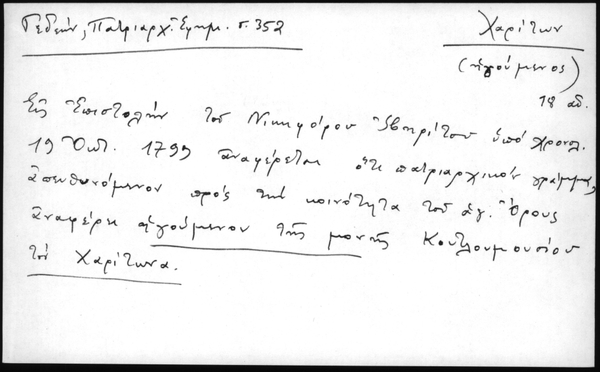 Γεδεών, Πατριαρχ. Ἐφημ. σ. 352
Χαρίτων
(ἡγούμενος)
18 αἰ.
Εἰς Ἐπιστολήν τοῦ Νικηφόρου Ἰβηρίτου ὑπό χρονολ.
19 Ὀκτ. 1799 ἀναφέρεται ὅτι πατριαρχικόν γράμμα,
ἀπευθυνόμενον πρός τήν κοινότητα τοῦ ἁγ. Ὄρους
ἀναφέρει ἡγούμενον τῆς μονῆς Κουτλουμουσίου
τόν Χαρίτωνα.